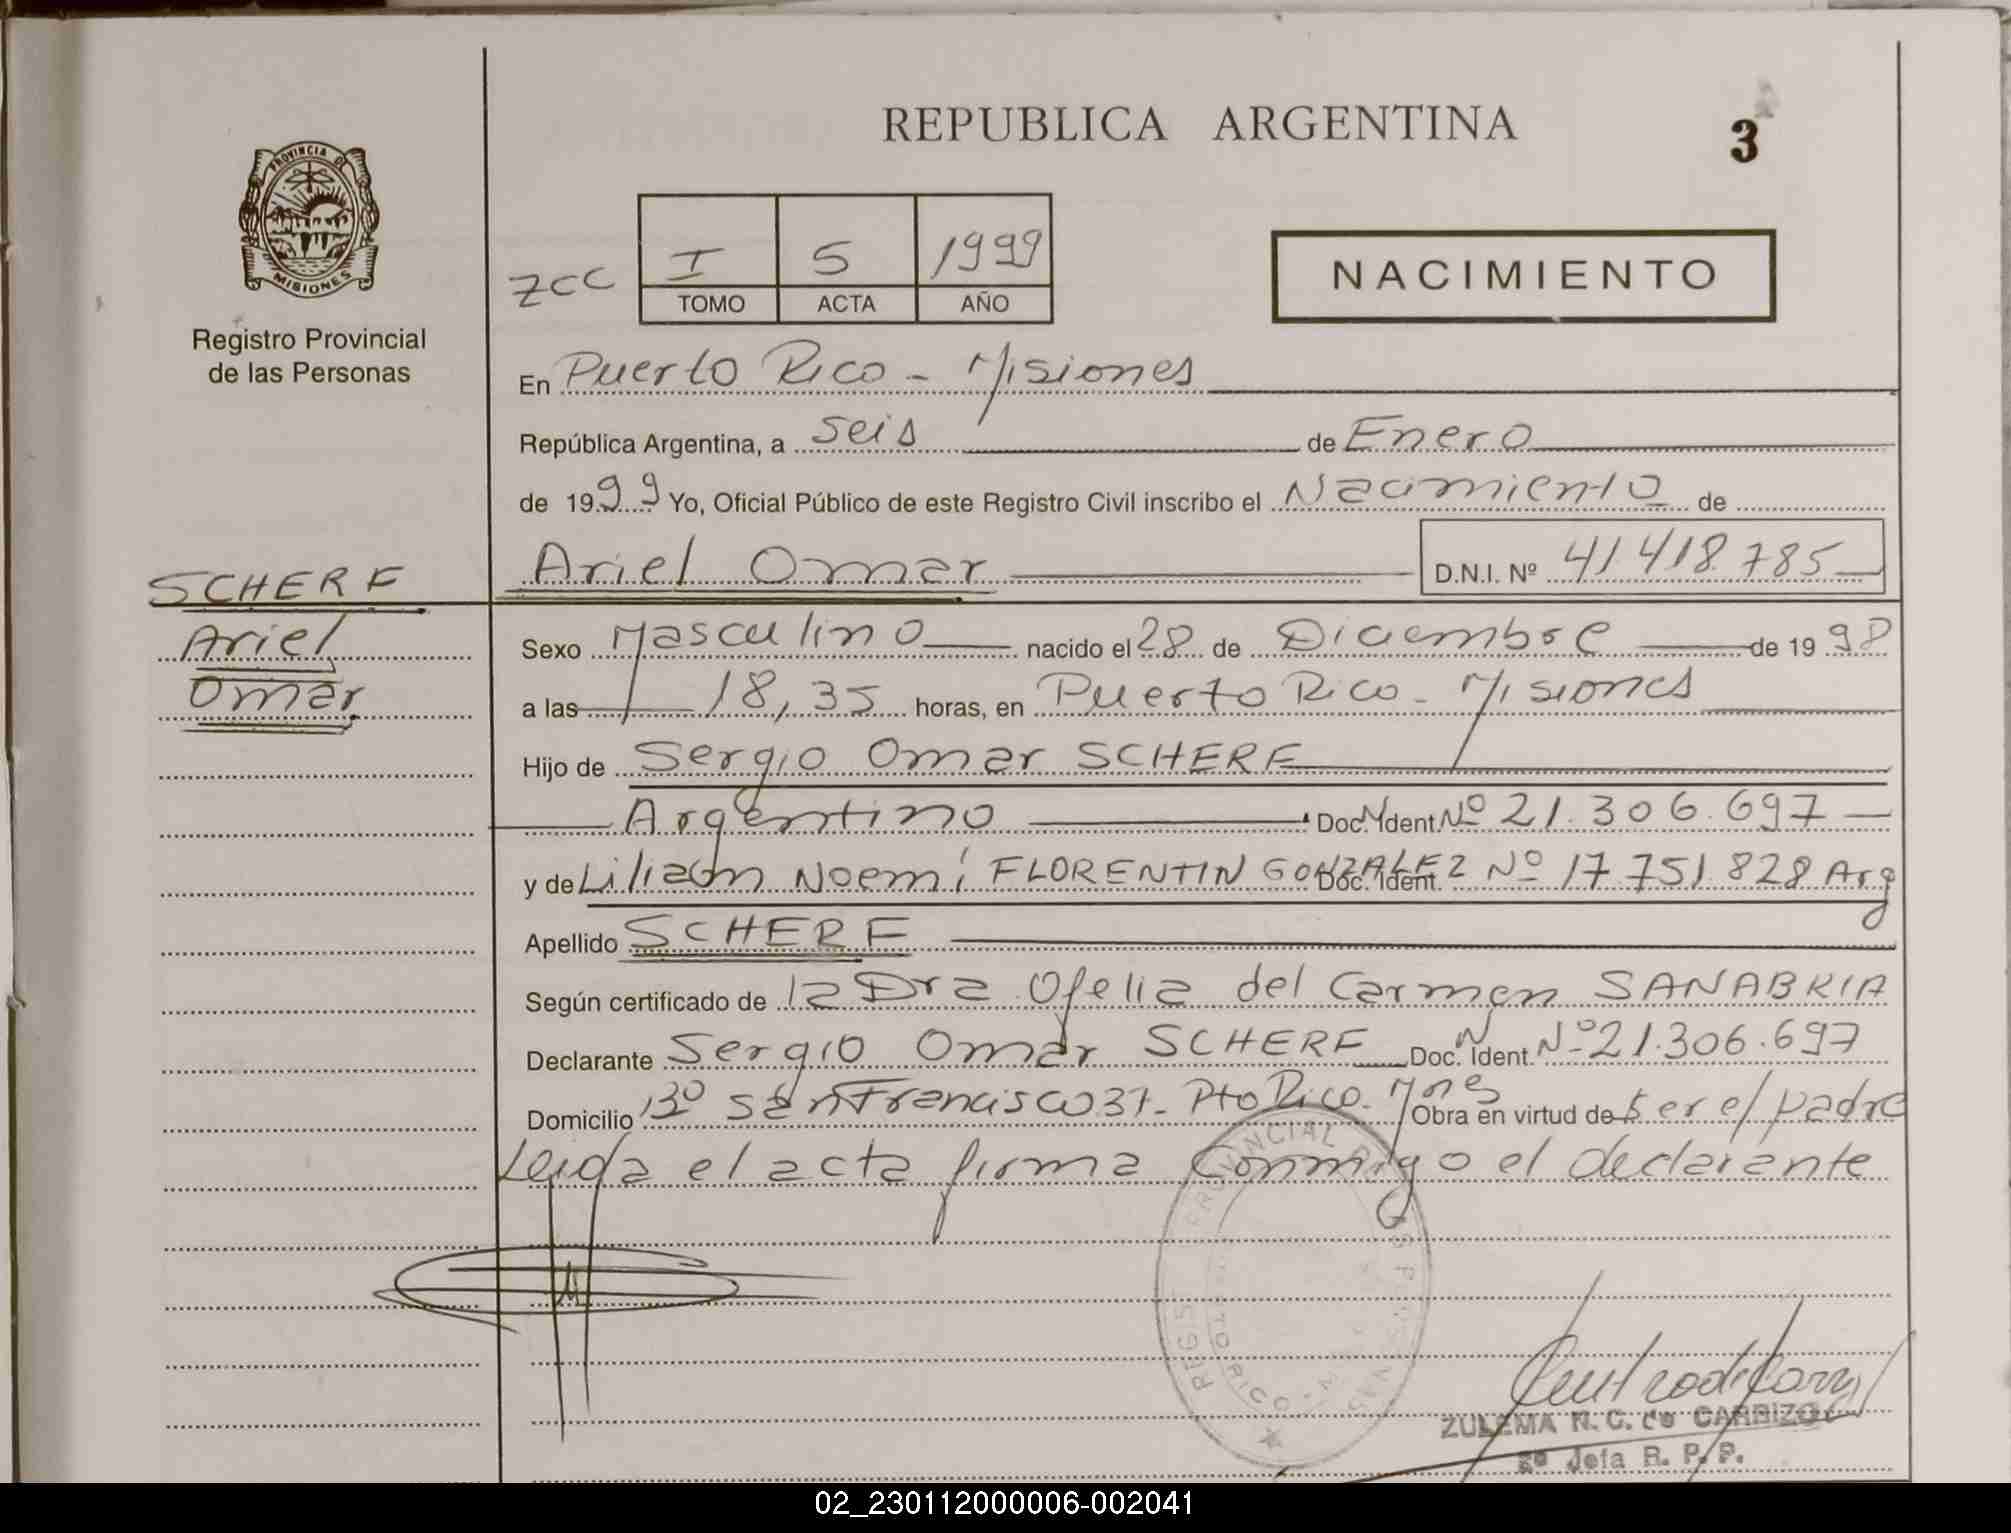 REPUBLICA ARGENTINA
3
PROVINCIA DE
MISIONES
Registro Provincial
de las Personas
ZCC
I 5 1999
TOMO ACTA AÑO
NACIMIENTO
En Puerto Rico - Misiones
República Argentina, a seis de Enero
de 1999 Yo, Oficial Público de este Registro Civil inscribo el Nacimiento de
Ariel Omar D.N.I. Nº 41 418.785
SCHERF
Ariel
Omar
Sexo Masculino nacido el 28 de Diciembre de 1998
a las 18,35 horas, en Puerto Rico - Misiones
Hijo de Sergio Omar SCHERF
Argentino Doc. Ident. Nº 21.306.697
y de Lilian Noemí FLORENTIN GONZALEZ Doc. Ident. Nº 17 751.828 Arg
Apellido SCHERF
Según certificado de la Dra Ofelia del Carmen SANABRIA
Declarante Sergio Omar SCHERF Doc. N Ident. Nº 21.306.697
Domicilio Bº San Francisco 37 - Pto Rico - Mnes Obra en virtud de ser el padre
Leida el acta firma Conmigo el declarante
ZULEMA N. C. de CARRIZO
2º Jefa R. P. P.
02_230112000006-002041